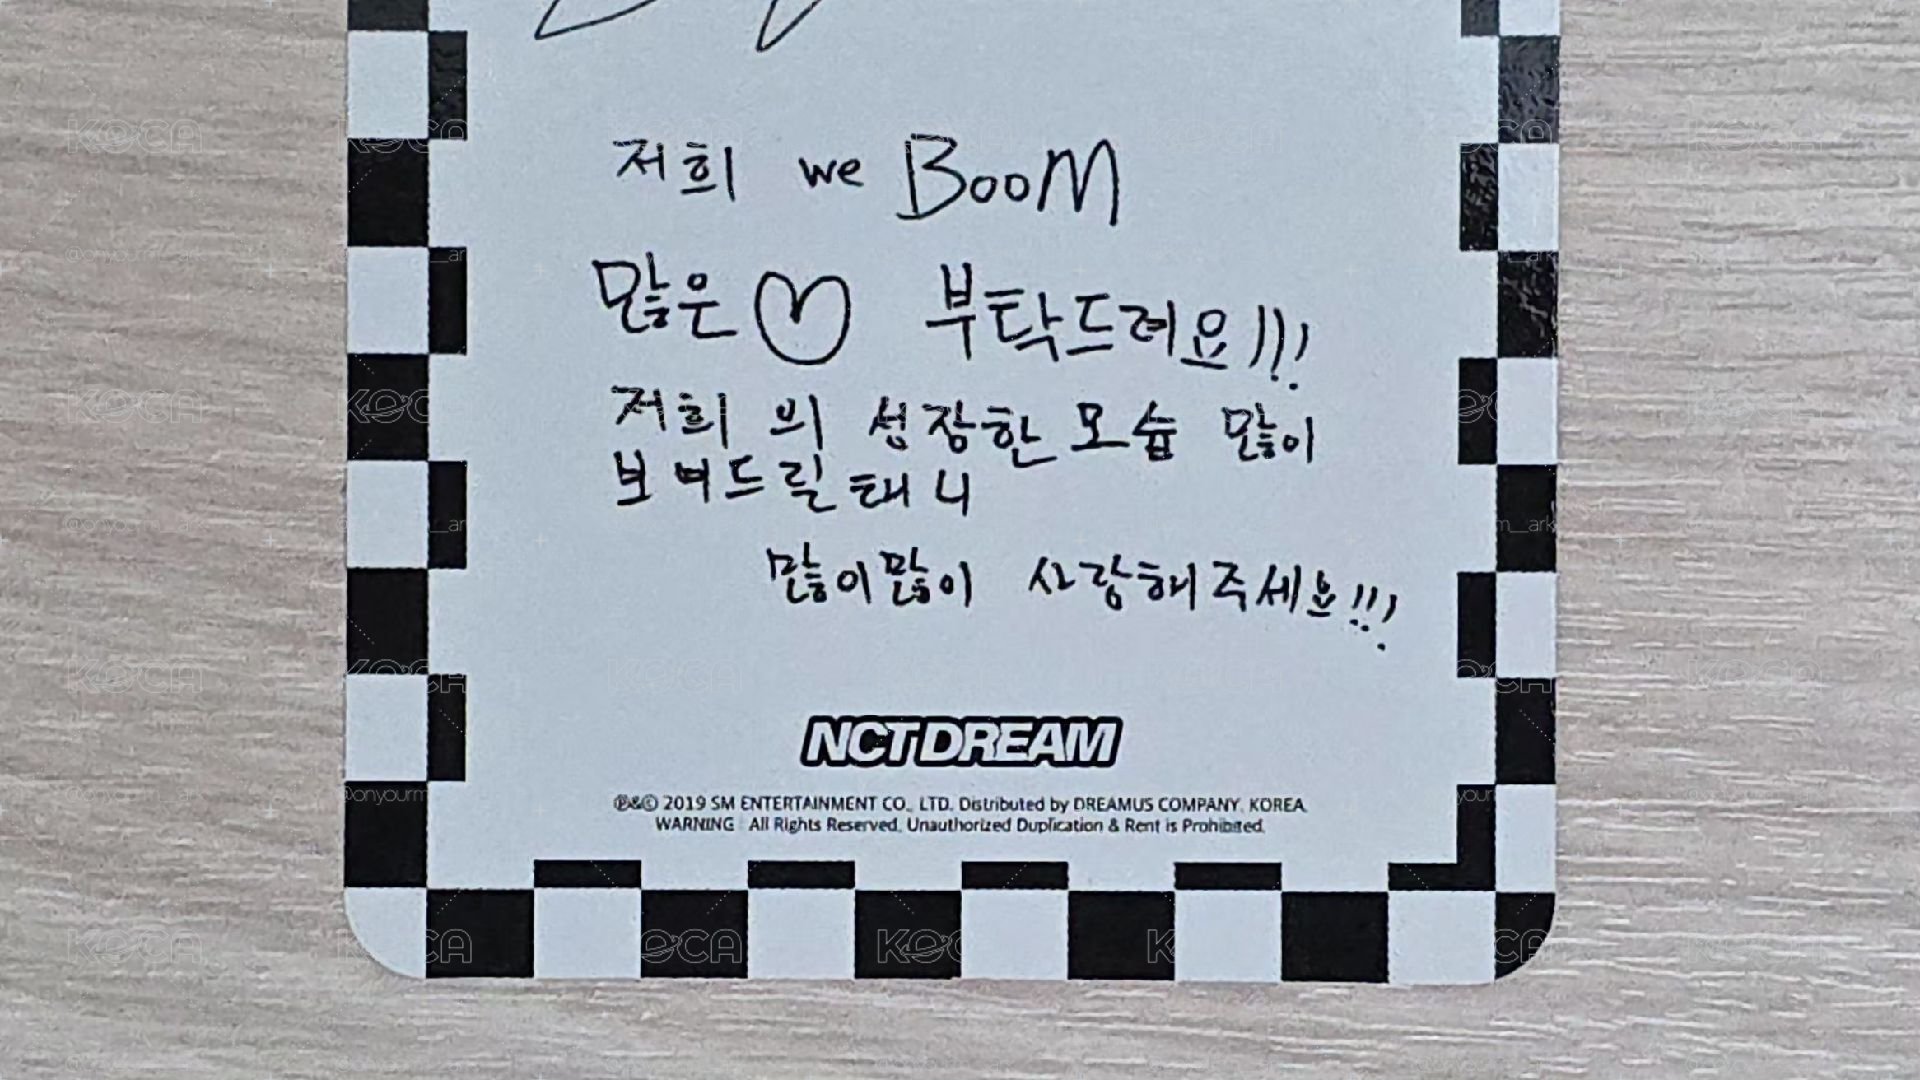 저희 we BOOM
많은 ♡ 부탁드려요!!!
저희의 성장한 모습 많이
보여드릴태니
많이많이 사랑해주세요!!!
NCT DREAM
℗&© 2019 SM ENTERTAINMENT CO., LTD. Distributed by DREAMUS COMPANY. KOREA
WARNING : All Rights Reserved. Unauthorized Duplication & Rent is Prohibited.
KOCA
@onyourm__ark